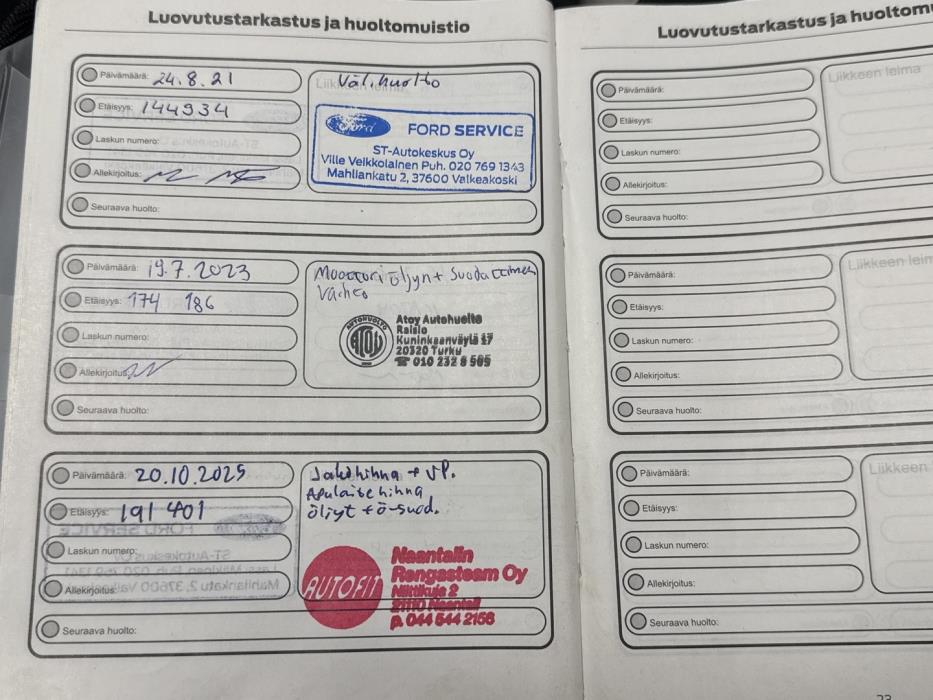 Luovutustarkastus ja huoltomuistio
Päivämäärä: 24.8.21
Etäisyys: 144934
Laskun numero:
Allekirjoitus:
Seuraava huolto:
Välihuolto
Ford FORD SERVICE
ST-Autokeskus Oy
Ville Veikkolainen Puh. 020 769 1343
Mahliankatu 2, 37600 Valkeakoski
Päivämäärä: 19.7.2023
Etäisyys: 174 186
Laskun numero:
Allekirjoitus:
Seuraava huolto:
Moottori öljyn + suodattimen
vaihto
AUTOHUOLTO
ATOY
Atoy Autohuolto
Raisio
Kuninkaanväylä 17
20320 Turku
☎ 010 232 8 505
Päivämäärä: 20.10.2025
Etäisyys: 191 401
Laskun numero:
Allekirjoitus:
Seuraava huolto:
Jakohihna + VP.
Apulaitehihna
öljyt + ö-suod.
AUTOFIT
Naantalin
Rengasteam Oy
Niittikuja 2
21110 Naantali
p. 044 544 2156
Luovutustarkastus ja huoltomu
Päivämäärä:
Etäisyys:
Laskun numero:
Allekirjoitus:
Seuraava huolto:
Liikkeen leima
Päivämäärä:
Etäisyys:
Laskun numero:
Allekirjoitus:
Seuraava huolto:
Liikkeen leim
Päivämäärä:
Etäisyys:
Laskun numero:
Allekirjoitus:
Seuraava huolto:
Liikkeen